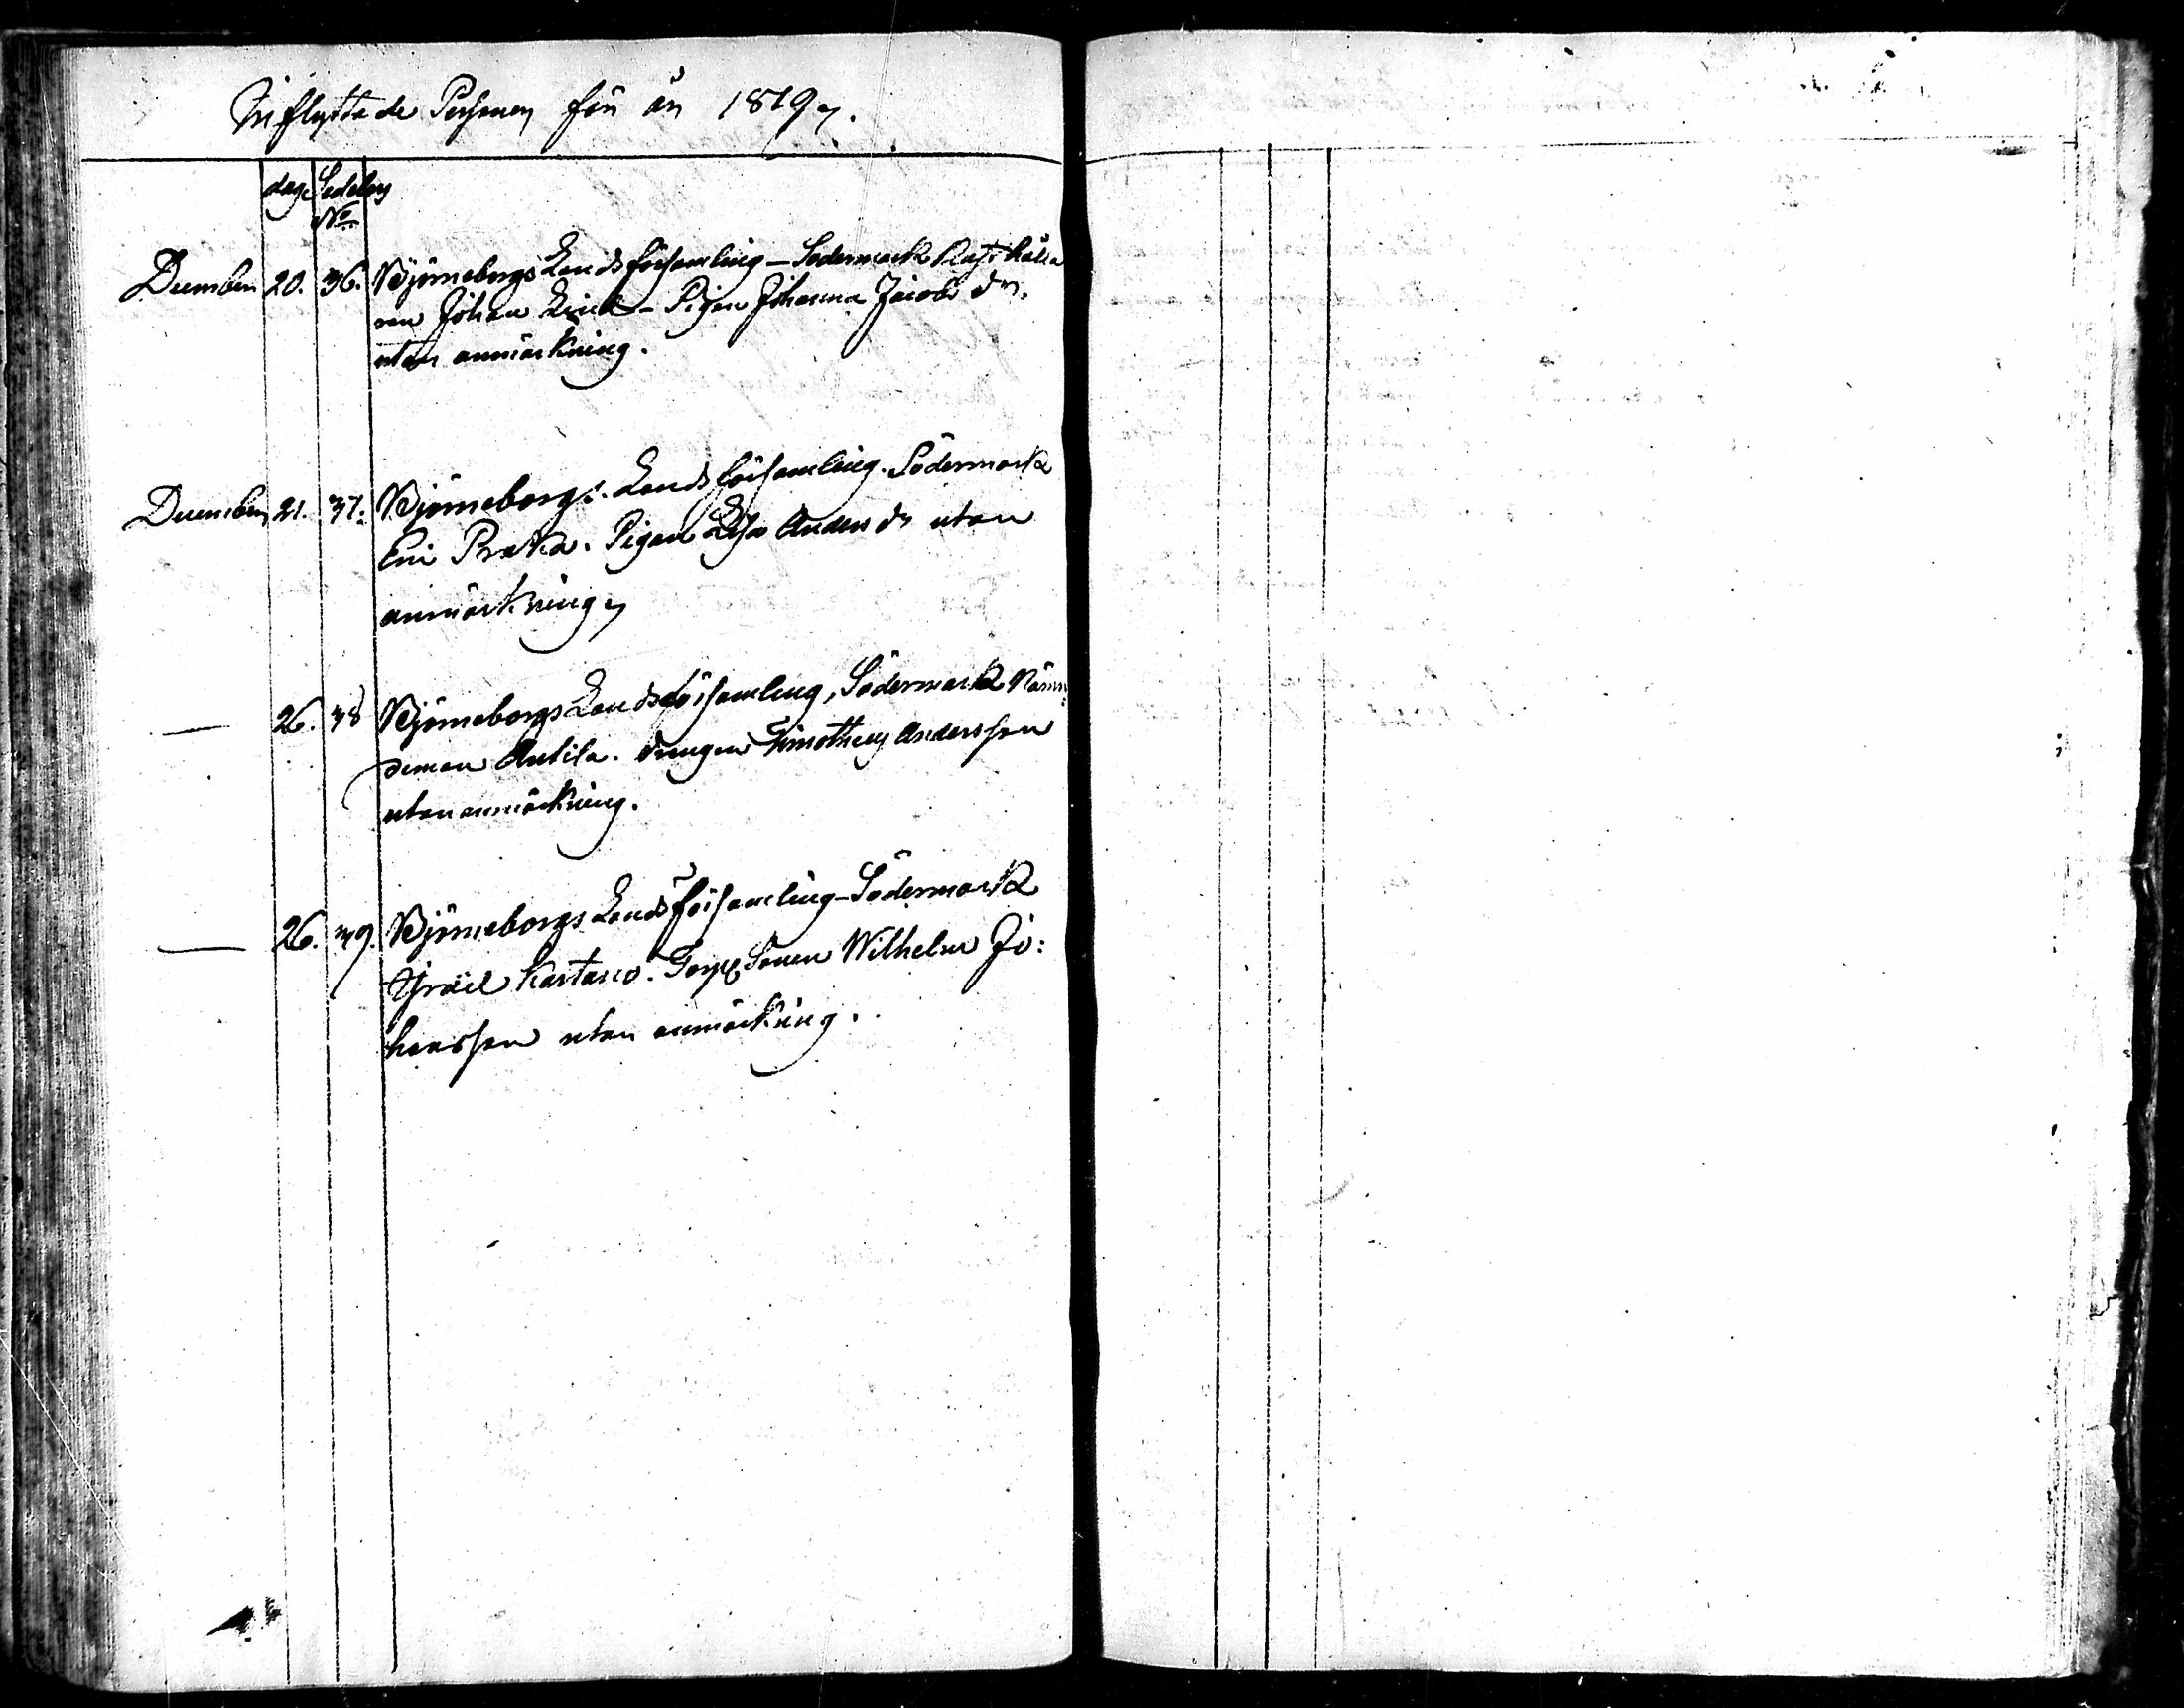 Inflyttade Personer för år 1819.
dag Sedelns
No
December 20. 36. Björneborgs Landsförsamling - Södermark Rusthålla
ren Johan - Pigan Johanna Jacobs dr.
utan anmärkning.
December 21. 37. Björneborgs Landsförsamling. Södermark
Pigan Lisa Anders dr utan
anmärkning
— 26. 38 Björneborgs Landsförsamling, Södermark Nämn:
deman Antila. drengen Timotheus Andersson
utan anmärkning.
— 26. 39. Björneborgs Landsförsamling - Södermark
Israel Kartano. Torp Sonen Wilhelm Jo:
hansson utan anmärkning.